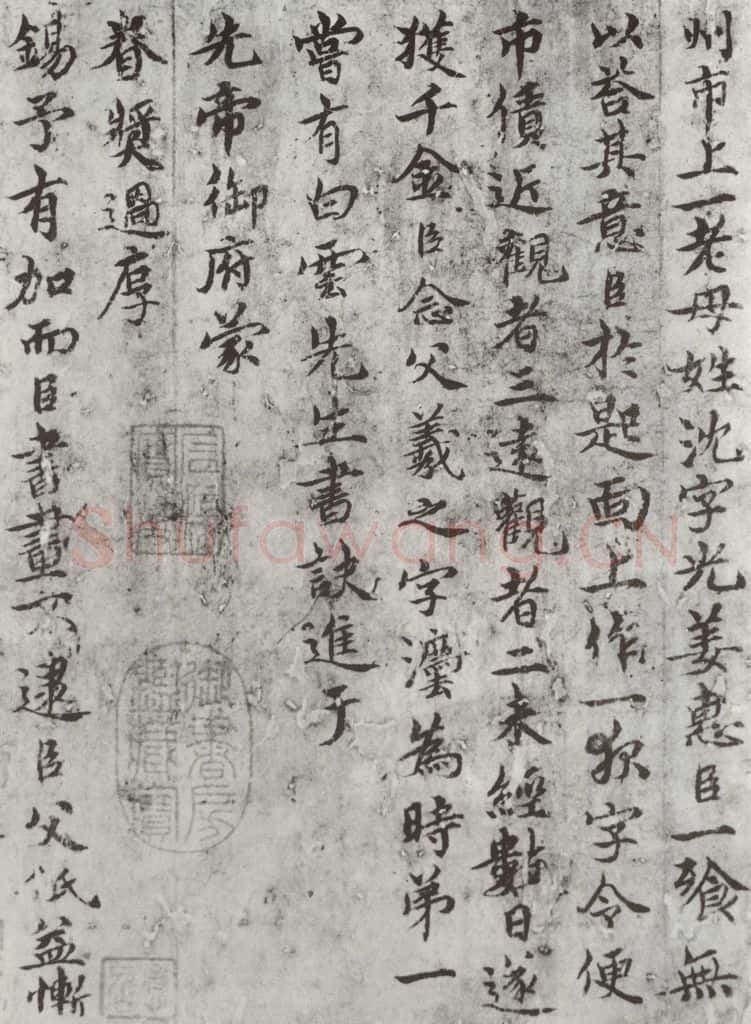 州市上一老母姓沈字光姜惠臣一飱無
以荅其意臣於匙面上作一夜字令便
市債近觀者三遠觀者二未經數日遂
獲千金臣念父羲之字灋為時第一
嘗有白雲先生書訣進于
先帝御府蒙
眷奬過厚
錫予有加而臣書畫不逮臣父祇益慚
御書房鑒藏寶
Shufawang.CN